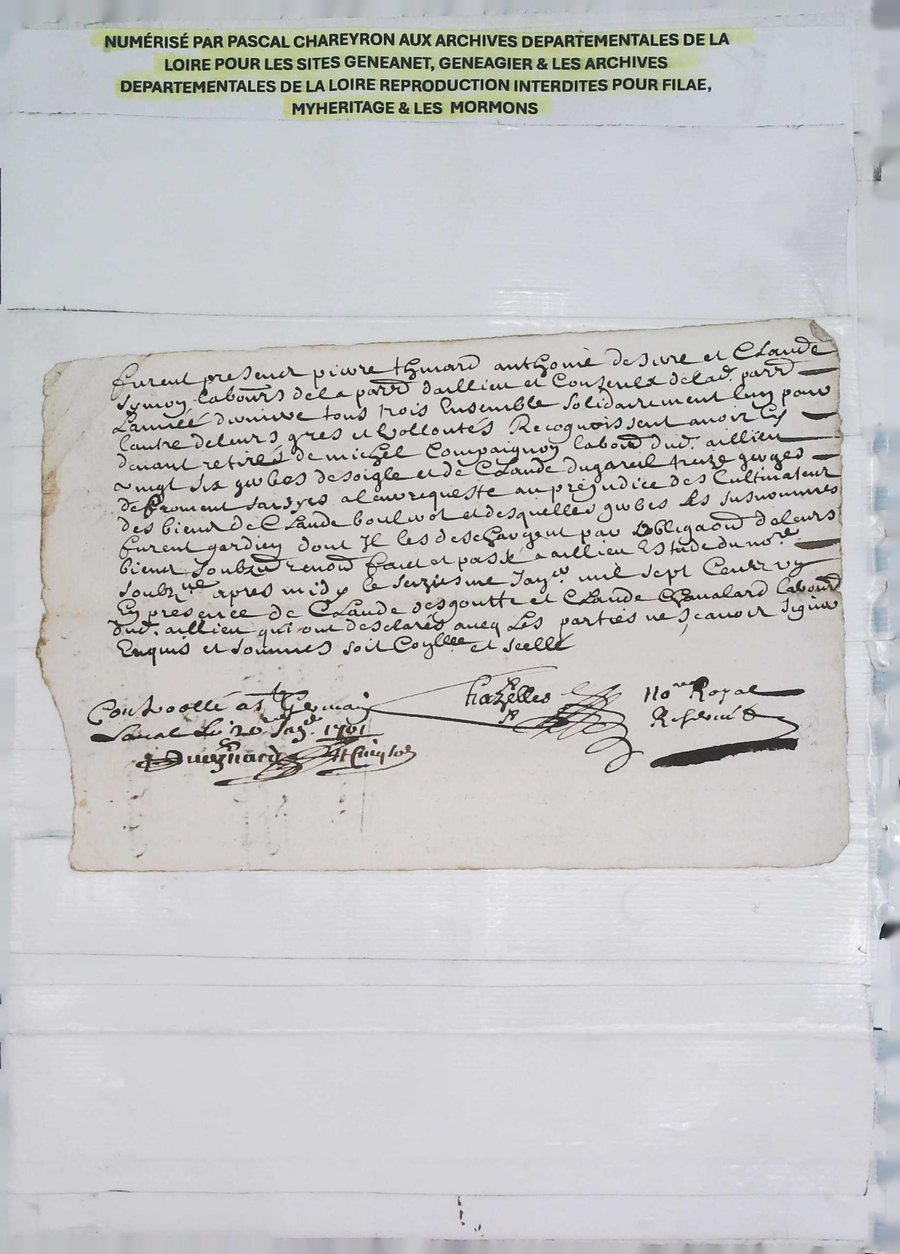 NUMÉRISÉ PAR PASCAL CHAREYRON AUX ARCHIVES DEPARTEMENTALES DE LA
LOIRE POUR LES SITES GENEANET, GENEAGIER & LES ARCHIVES
DEPARTEMENTALES DE LA LOIRE REPRODUCTION INTERDITES POUR FILAE,
MYHERITAGE & LES MORMONS
furent presens pierre anthoine desire et Claude
Symon labours de la parr daillieu et Conseulx de lad. parr
Lannée derniere tous trois Ensemble solidairement lung pour
lautre de leurs gres et vollontés Recognoissent avoir Cy
devant retirés de michel Compaignon labour dud. aillieu
vingt six gerbes de soigle et de Claude dugareil treze gerbes
de froment saisyes a leur requeste au prejudice des Cultivateur
des bieus de Claude et desquelles gerbes les susnommés
furent gardien dont Il les deschargent par obligaon de leurs
bieus soubzm renon faict et passé a aillieu Estude du nore
soubzne apres midy le seziesme Janer mil sept Centz
En presence de Claude desgoutte et Claude Chavalard labour
dud. aillieu qui ont desclarés avecq les parties ne sçavoir signer
Enquis et sommes soit Coyllee et seelle
Controollé a st Germain
Laval le 20 Janer. 1701
Chazelles
no.re Royal
Reservé